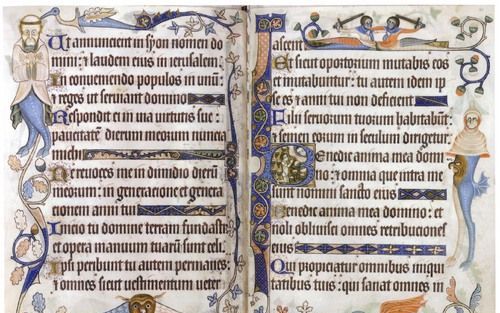 Ut annuncient in syon nomen do
mini: ⁊ laudem eius in ierusalem.
In conueniendo populos in unū:
⁊ reges ut seruiant domino
Respondit ei in uia uirtutis sue:
paucitatē dierum meorum nuncia
michi
Ne reuoces me in dimidio dierū
meorum: in generacione et genera
cionem anni tui
Inicio tu domine terram fundasti:
et opera manuum tuarū sunt celi.
Ipsi peribunt tu autem permanes:
⁊ omnes sicut uestimentum ueter
ascent
Et sicut opertorium mutabis eos
⁊ mutabuntur: tu autem idem ip
se es ⁊ anni tui non deficient
Filii seruorum tuorum habitabūt:
⁊ semen eorum in seculum dirigetur
Benedic anima mea domi
no: ⁊ omnia que intra me
sunt nomini sancto eius
Benedic anima mea domino: et
noli obliuisci omnes retribuciones
eius
Qui propiciatur omnibus iniqui
tatibus tuis: qui sanat omnes in